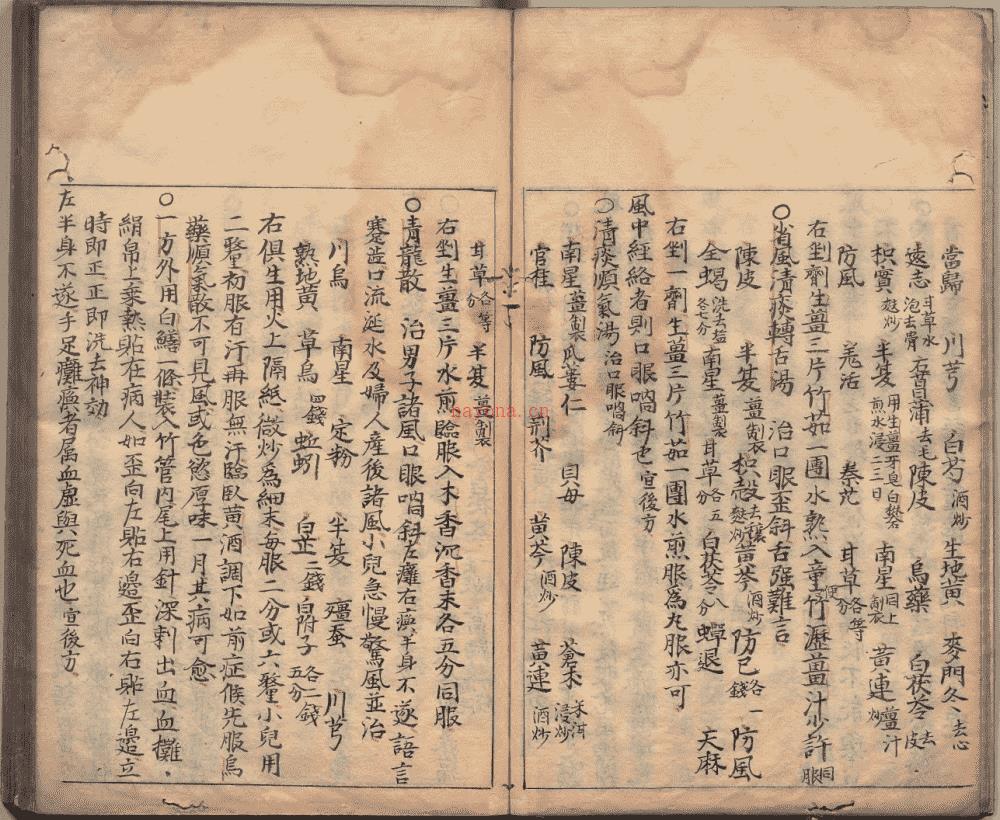 當歸 川芎 白芍酒炒 生地黃 麥門冬去心
遠志甘草水泡去骨 石菖蒲去毛 陳皮 烏藥 白茯苓去皮
枳實麩炒 半夏用生薑牙皂白礬煎水浸二三日 南星同上製 黃連薑汁炒
防風 羌活 秦艽 甘草各等分
右剉劑生薑三片竹茹一團水熟入童便竹瀝薑汁少許同服
○省風清痰轉舌湯 治口眼歪斜舌强難言
陳皮 半夏薑製 枳殼去穰麩炒 黃芩酒炒 防己各一錢 防風
全蝎洗去塩各七分 南星薑製 甘草各五分 白茯苓八分 蟬退 天麻
右剉一劑生薑三片竹茹一團水煎服為丸服亦可
風中經絡者則口眼喎斜也宜後方
○清痰順氣湯治口眼喎斜
南星薑製 瓜蔞仁 貝母 陳皮 蒼朮米泔浸炒
官桂 防風 荊介 黃芩酒炒 黃連酒炒
甘草各等分 半夏薑製
○右剉生薑三片水煎臨服入木香沉香末各五分同服
○青龍散 治男子諸風口眼喎斜左癱右瘓半身不遂語言
蹇澁口流涎水及婦人産後諸風小兒急慢驚風並治
川烏 南星 定粉 半夏 殭蚕 川芎
熟地黃 草烏四錢 蚯蚓 白芷三錢 白附子各二錢五分
右俱生用火上隔紙微炒為細末每服二分或六釐小兒用
二釐初服有汗再服無汗臨臥黃酒調下如前症候先服烏
藥順氣散不可見風或色慾厚味一月其病可愈
○一方外用白鱔一條裝入竹管内尾上用針深刺出血血攤
絹帛上乘熱貼在病人如歪向左貼右邊歪向右貼左邊立
時即正正即洗去神効
左半身不遂手足癱瘓者属血虛與死血也宜後方
hayona.cn